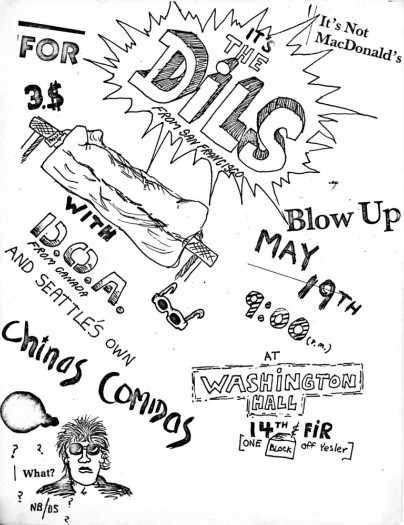 FOR
3.$
IT'S
THE
DiLS
FROM SAN FRANCISCO
It's Not
MacDonald's
WITH
D.O.A.
FROM CANADA
AND SEATTLE'S OWN
Chinas Comidas
Blow Up
MAY
19TH
9:00 (P.M.)
AT
WASHINGTON
HALL
14TH & FiR
[ONE BLOCK off Yesler]
?
?
What?
?
?
?
NB/DS